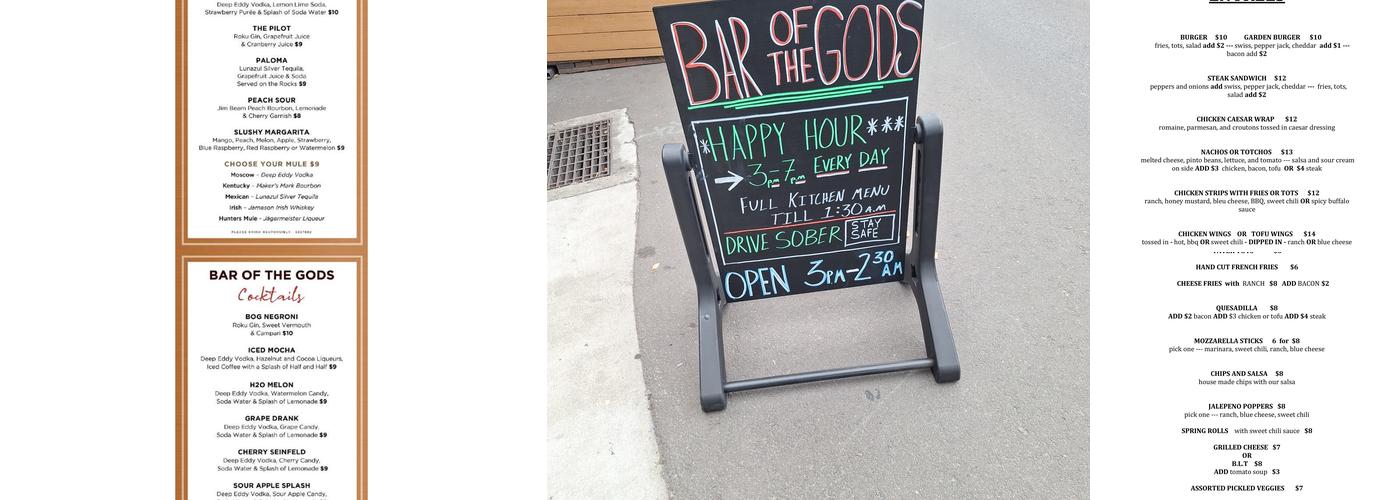 Deep Eddy Vodka, Lemon Lime Soda,
Strawberry Purée & Splash of Soda Water $10
THE PILOT
Roku Gin, Grapefruit Juice
& Cranberry Juice $9
PALOMA
Lunazul Silver Tequila,
Grapefruit Juice & Soda
Served on the Rocks $9
PEACH SOUR
Jim Beam Peach Bourbon, Lemonade
& Cherry Garnish $8
SLUSHY MARGARITA
Mango, Peach, Melon, Apple, Strawberry,
Blue Raspberry, Red Raspberry or Watermelon $9
CHOOSE YOUR MULE $9
Moscow – Deep Eddy Vodka
Kentucky – Maker's Mark Bourbon
Mexican – Lunazul Silver Tequila
Irish – Jameson Irish Whiskey
Hunters Mule – Jägermeister Liqueur
PLEASE DRINK RESPONSIBLY.
BAR OF THE GODS
Cocktails
BOG NEGRONI
Roku Gin, Sweet Vermouth
& Campari $10
ICED MOCHA
Deep Eddy Vodka, Hazelnut and Cocoa Liqueurs,
Iced Coffee with a Splash of Half and Half $9
H2O MELON
Deep Eddy Vodka, Watermelon Candy,
Soda Water & Splash of Lemonade $9
GRAPE DRANK
Deep Eddy Vodka, Grape Candy,
Soda Water & Splash of Lemonade $9
CHERRY SEINFELD
Deep Eddy Vodka, Cherry Candy,
Soda Water & Splash of Lemonade $9
SOUR APPLE SPLASH
Deep Eddy Vodka, Sour Apple Candy,
BAR OF THE GODS
*HAPPY HOUR***
→ 3pm-7pm EVERY DAY
FULL KITCHEN MENU
TILL 1:30 A.M
DRIVE SOBER STAY SAFE
OPEN 3PM-2:30 AM
BURGER $10 GARDEN BURGER $10
fries, tots, salad add $2 --- swiss, pepper jack, cheddar add $1 ---
bacon add $2
STEAK SANDWICH $12
peppers and onions add swiss, pepper jack, cheddar --- fries, tots,
salad add $2
CHICKEN CAESAR WRAP $12
romaine, parmesan, and croutons tossed in caesar dressing
NACHOS OR TOTCHOS $13
melted cheese, pinto beans, lettuce, and tomato --- salsa and sour cream
on side ADD $3 chicken, bacon, tofu OR $4 steak
CHICKEN STRIPS WITH FRIES OR TOTS $12
ranch, honey mustard, bleu cheese, BBQ, sweet chili OR spicy buffalo
sauce
CHICKEN WINGS OR TOFU WINGS $14
tossed in - hot, bbq OR sweet chili - DIPPED IN - ranch OR blue cheese
HAND CUT FRENCH FRIES $6
CHEESE FRIES with RANCH $8 ADD BACON $2
QUESADILLA $8
ADD $2 bacon ADD $3 chicken or tofu ADD $4 steak
MOZZARELLA STICKS 6 for $8
pick one --- marinara, sweet chili, ranch, blue cheese
CHIPS AND SALSA $8
house made chips with our salsa
JALEPENO POPPERS $8
pick one --- ranch, blue cheese, sweet chili
SPRING ROLLS with sweet chili sauce $8
GRILLED CHEESE $7
OR
B.L.T $8
ADD tomato soup $3
ASSORTED PICKLED VEGGIES $7